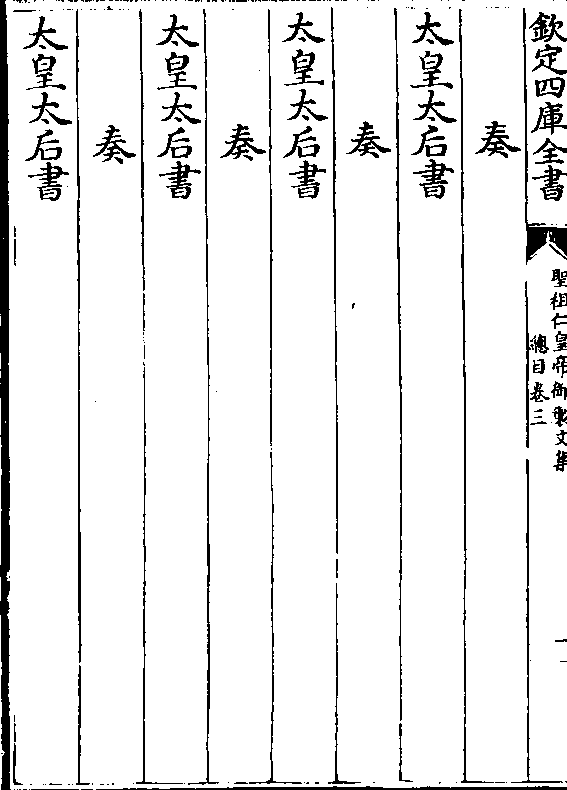 欽定四庫全書
聖祖仁皇帝御製文集
總目卷三
奏
太皇太后書
奏
太皇太后書
奏
太皇太后書
奏
太皇太后書